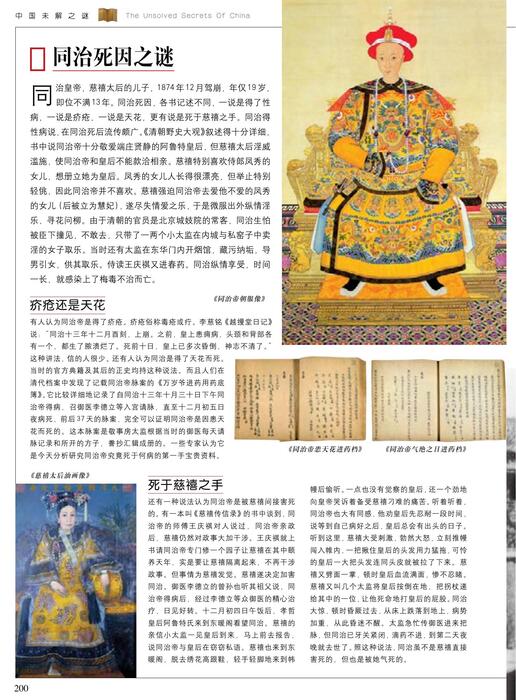 中国未解之谜 The Unsolved Secrets Of China
同治死因之谜
同治皇帝，慈禧太后的儿子，1874年12月驾崩，年仅19岁，
即位不满13年。同治死因，各书记述不同，一说是得了性
病，一说是疥疮，一说是天花，更有说是死于慈禧之手。同治得
性病说，在同治死后流传颇广。《清朝野史大观》叙述得十分详细，
书中说同治帝十分敬爱端庄贤静的阿鲁特皇后，但慈禧太后淫威
滥施，使同治帝和皇后不能款洽相亲。慈禧特别喜欢侍郎凤秀的
女儿，想册立她为皇后。凤秀的女儿人长得很漂亮，但举止特别
轻佻，因此同治帝并不喜欢。慈禧强迫同治帝去爱他不爱的凤秀
的女儿（后被立为慧妃），遂尽失情爱之乐，于是微服出外纵情淫
乐、寻花问柳。由于清朝的官员是北京城妓院的常客，同治生怕
被臣下撞见，不敢去，只带了一两个小太监在内城与私窑子中卖
淫的女子取乐。当时还有太监在东华门内开烟馆，藏污纳垢，导
男引女，供其取乐。侍读王庆祺又进春药。同治纵情享受，时间
一长，就感染上了梅毒不治而亡。
《同治帝朝服像》
疥疮还是天花
有人认为同治帝是得了疥疮。疥疮俗称毒疮或疔。李慈铭《越缦堂日记》
说：“同治十三年十二月酉刻，上崩。之前，皇上患痈病，头颈和背部各
有一个，都生了脓溃烂了。死前十日，皇上已多次昏倒，神志不清了。”
这种讲法，信的人很少。还有人认为同治是得了天花而死。
当时的官方典籍及其后的正史均持这种说法。而且人们在
清代档案中发现了记载同治帝脉案的《万岁爷进药用药底
簿》。它比较详细地记录了自同治十三年十月三十日下午同
治帝得病，召御医李德立等入宫请脉，直至十二月初五日
夜病死，前后37天的脉案，完全可以证明同治帝是因患天
花而死的。这本脉案是敬事房太监根据当时的御医每天请
脉记录和所开的方子，誊抄汇辑成册的。一些专家认为它
是今天分析研究同治帝究竟死于何病的第一手宝贵资料。
《同治帝患天花进药档》
《同治帝气绝之日进药档》
《慈禧太后油画像》
死于慈禧之手
还有一种说法认为同治帝是被慈禧间接害死
的。有一本叫《慈禧传信录》的书中谈到，同
治帝的师傅王庆祺对人说过，同治帝亲政
后，慈禧仍然对政事大加干涉。王庆祺就上
书请同治帝专门修一个园子让慈禧在其中颐
养天年，实是要让慈禧隔离起来，不再干涉
政事。但事情为慈禧发觉，慈禧遂决定加害
同治。御医李德立的曾孙也听其祖父说，同
治帝得病后，经过李德立等众御医的精心治
疗，日见好转。十二月初四日午饭后，孝哲
皇后阿鲁特氏来到东暖阁看望同治。慈禧的
亲信小太监一见皇后到来，马上前去报告，
说同治帝与皇后在窃窃私语。慈禧也来到东
暖阁，脱去绣花高跟鞋，轻手轻脚地来到帏
幔后偷听，一点也没有觉察的皇后，还一个劲地
向皇帝哭诉着备受慈禧刁难的痛苦。听着听着，
同治帝也大有同感，他劝皇后先忍耐一段时间，
说等到自己病好之后，皇后总会有出头的日子。
听到这里，慈禧大受刺激，勃然大怒，立刻推幔
闯入帏内，一把揪住皇后的头发用力猛拖，可怜
的皇后一大把头发连同头皮就被拉了下来。慈
禧又劈面一掌，顿时皇后血流满面，惨不忍睹。
慈禧又叫几个太监将皇后按倒在地，把拐杖递
给其中的一位，让他死命地打皇后的屁股。同治
大惊，顿时昏厥过去，从床上跌落到地上，病势
加重，从此昏迷不醒。太监急忙传御医进来把
脉，但同治已牙关紧闭，滴药不进，到第二天夜
晚就去世了。照这种说法，同治虽不是慈禧直接
害死的，但也是被她气死的。
200